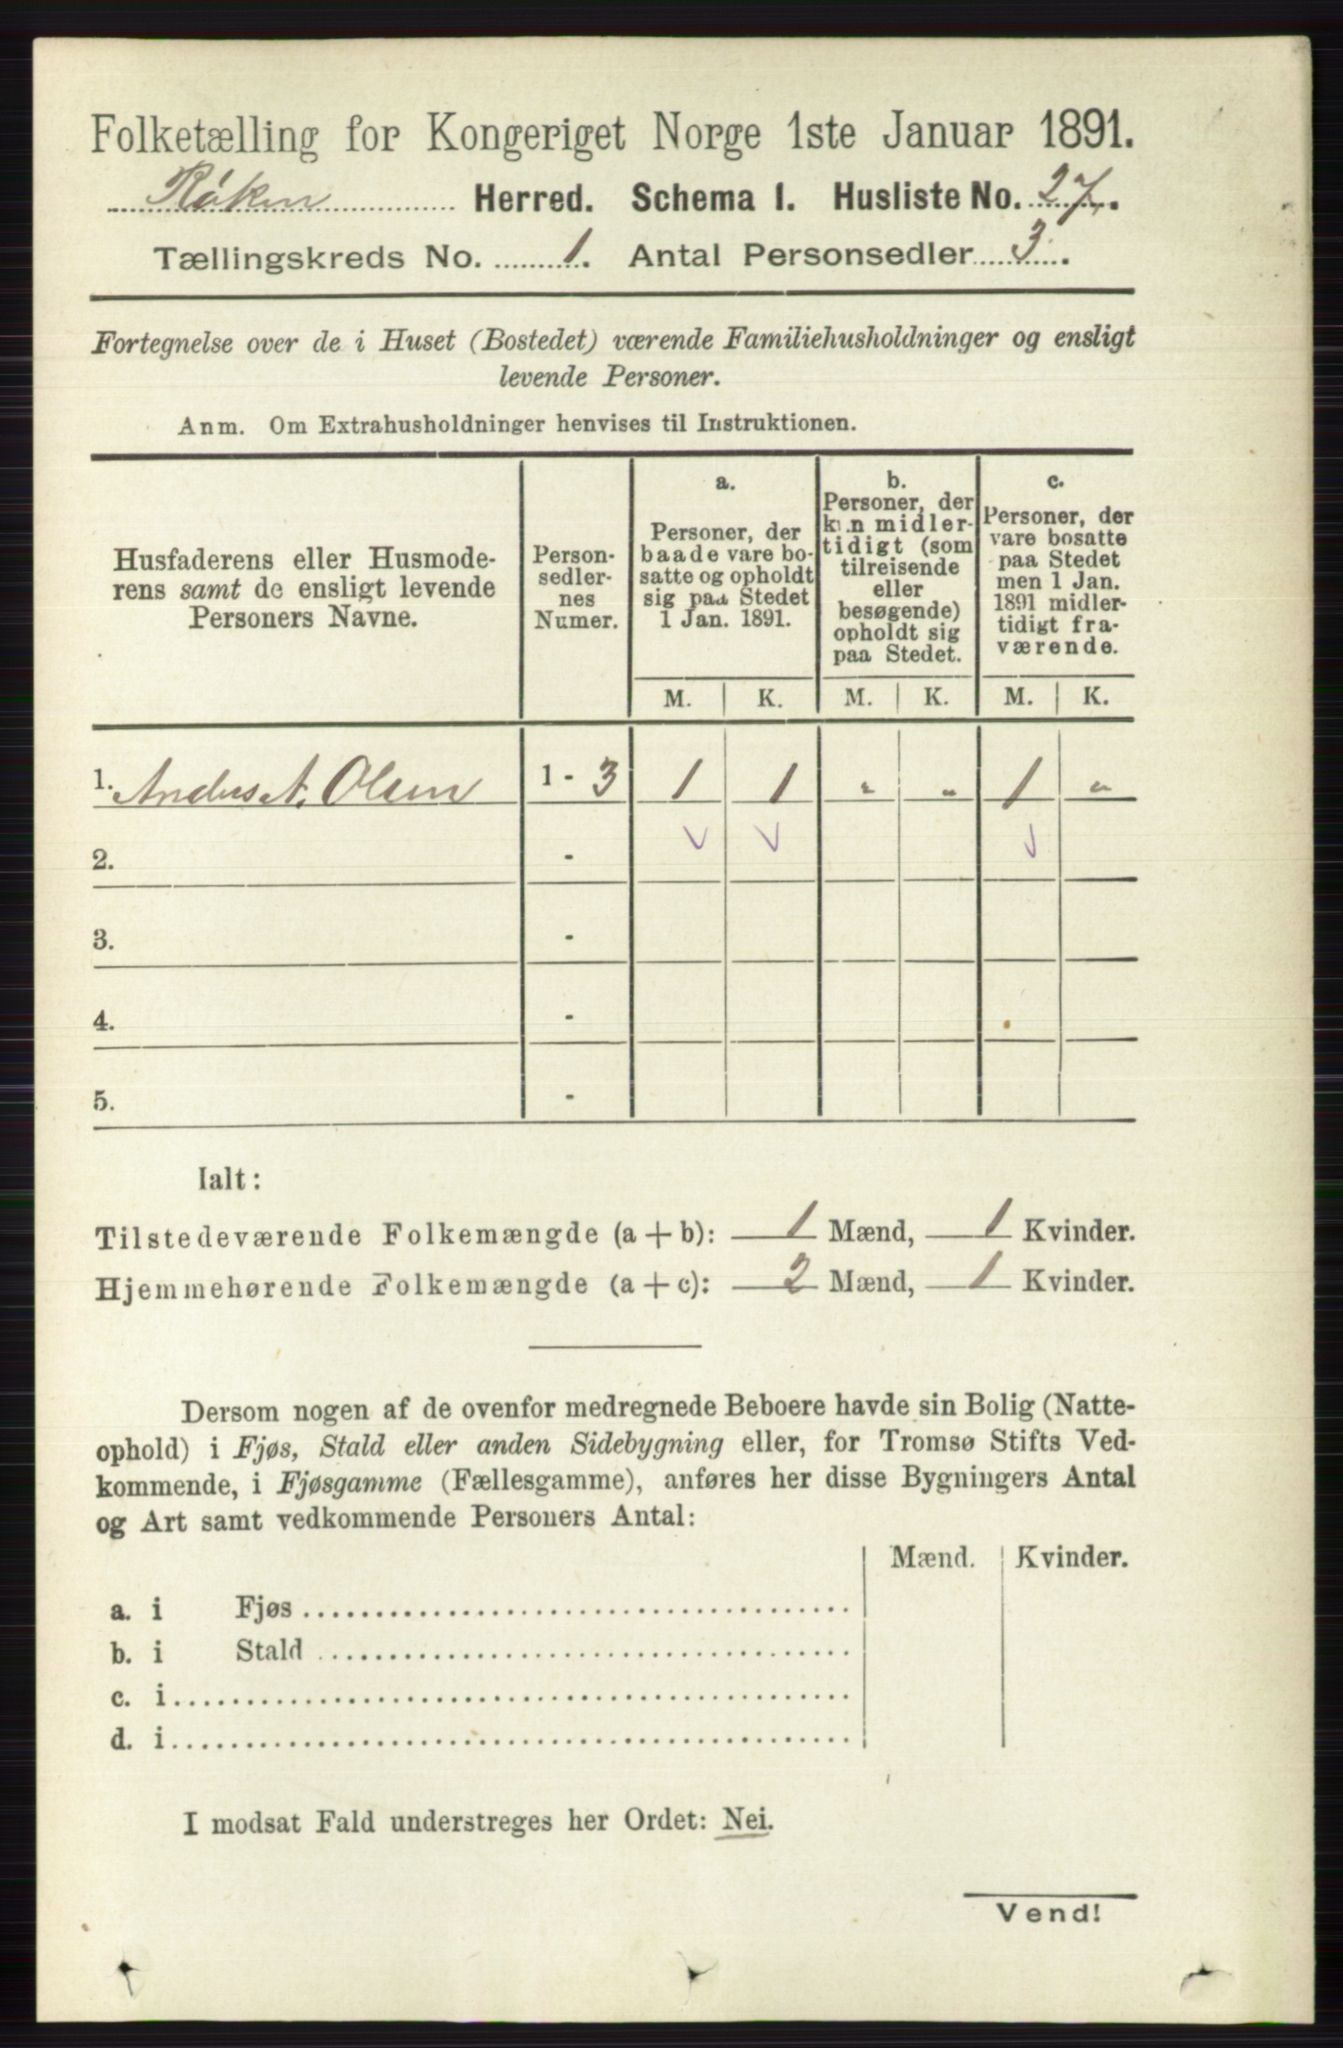 Folketælling for Kongeriget Norge 1ste Januar 1891.
Røken Herred. Schema 1. Husliste No. 27.
Tællingskreds No. 1. Antal Personsedler 3.
Fortegnelse over de i Huset (Bostedet) værende Familiehusholdninger og ensligt
levende Personer.
Anm. Om Extrahusholdninger henvises til Instruktionen.
Husfaderens eller Husmode-
rens samt de ensligt levende
Personers Navne.
Person-
sedler-
nes
Numer.
a.
Personer, der
baade vare bo-
satte og opholdt
sig paa Stedet
1 Jan. 1891.
b.
Personer, der
kun midler-
tidigt (som
tilreisende
eller
besøgende)
opholdt sig
paa Stedet.
c.
Personer, der
vare bosatte
paa Stedet
men 1 Jan.
1891 midler-
tidigt fra-
værende.
M. K. M. K. M. K.
1. Anders A. Olsen 1 - 3 1 1 " " 1 "
2. -
3. -
4. -
5. -
Ialt:
Tilstedeværende Folkemængde (a + b): 1 Mænd, 1 Kvinder.
Hjemmehørende Folkemængde (a + c): 2 Mænd, 1 Kvinder.
Dersom nogen af de ovenfor medregnede Beboere havde sin Bolig (Natte-
ophold) i Fjøs, Stald eller anden Sidebygning eller, for Tromsø Stifts Ved-
kommende, i Fjøsgamme (Fællesgamme), anføres her disse Bygningers Antal
og Art samt vedkommende Personers Antal:
Mænd. Kvinder.
a. i Fjøs
b. i Stald
c. i
d. i
I modsat Fald understreges her Ordet: Nei.
Vend!